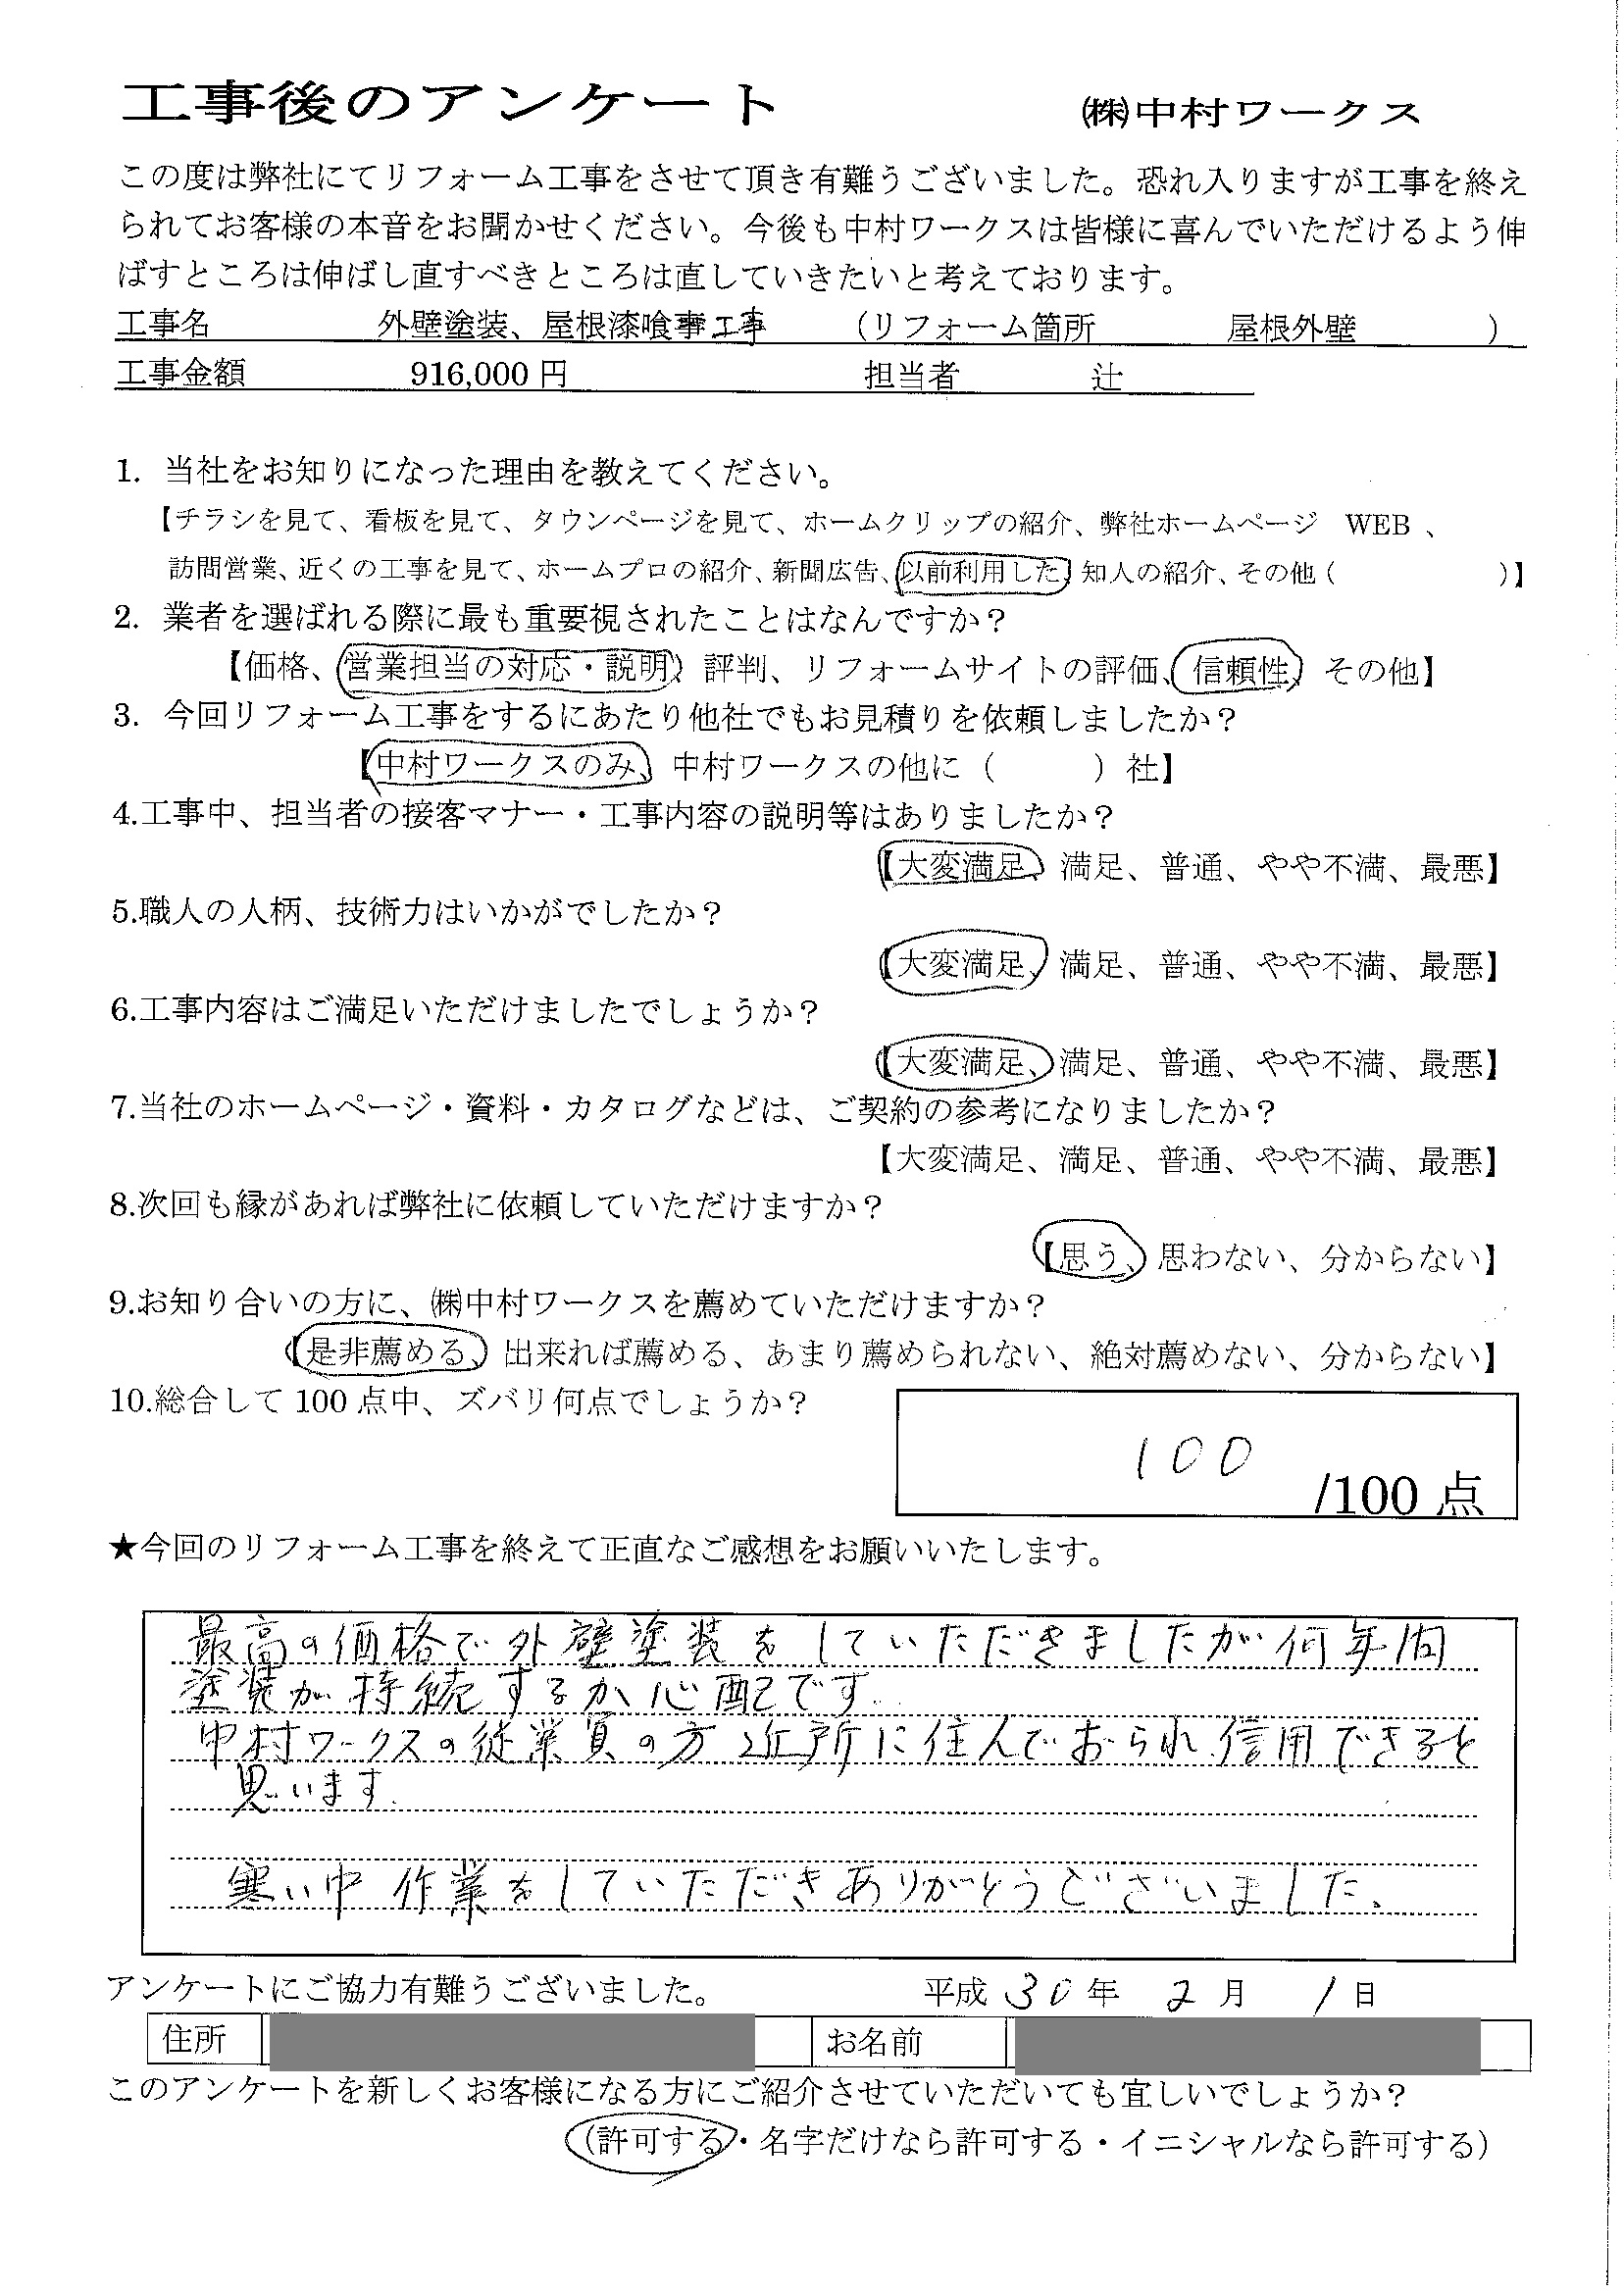 工事後のアンケート ㈱中村ワークス
この度は弊社にてリフォーム工事をさせて頂き有難うございました。恐れ入りますが工事を終え
られてお客様の本音をお聞かせください。今後も中村ワークスは皆様に喜んでいただけるよう伸
ばすところは伸ばし直すべきところは直していきたいと考えております。
工事名 外壁塗装、屋根漆喰工事 （リフォーム箇所 屋根外壁 ）
工事金額 916,000 円 担当者 辻
1. 当社をお知りになった理由を教えてください。
【チラシを見て、看板を見て、タウンページを見て、ホームクリップの紹介、弊社ホームページ WEB 、
訪問営業、近くの工事を見て、ホームプロの紹介、新聞広告、以前利用した、知人の紹介、その他（ ）】
2. 業者を選ばれる際に最も重要視されたことはなんですか？
【価格、営業担当の対応・説明、評判、リフォームサイトの評価、信頼性、その他】
3. 今回リフォーム工事をするにあたり他社でもお見積りを依頼しましたか？
【中村ワークスのみ、中村ワークスの他に（ ）社】
4.工事中、担当者の接客マナー・工事内容の説明等はありましたか？
【大変満足、満足、普通、やや不満、最悪】
5.職人の人柄、技術力はいかがでしたか？
【大変満足、満足、普通、やや不満、最悪】
6.工事内容はご満足いただけましたでしょうか？
【大変満足、満足、普通、やや不満、最悪】
7.当社のホームページ・資料・カタログなどは、ご契約の参考になりましたか？
【大変満足、満足、普通、やや不満、最悪】
8.次回も縁があれば弊社に依頼していただけますか？
【思う、思わない、分からない】
9.お知り合いの方に、㈱中村ワークスを薦めていただけますか？
【是非薦める、出来れば薦める、あまり薦められない、絶対薦めない、分からない】
10.総合して 100 点中、ズバリ何点でしょうか？
100 /100 点
★今回のリフォーム工事を終えて正直なご感想をお願いいたします。
最高の価格で外壁塗装をしていただきましたが何年間
塗装が持続するか心配です.
中村ワークスの従業員の方近所に住んでおられ信用できると
思います.
寒い中作業をしていただきありがとうございました.
アンケートにご協力有難うございました。 平成 30 年 2 月 1 日
住所 お名前
このアンケートを新しくお客様になる方にご紹介させていただいても宜しいでしょうか？
（許可する・名字だけなら許可する・イニシャルなら許可する）